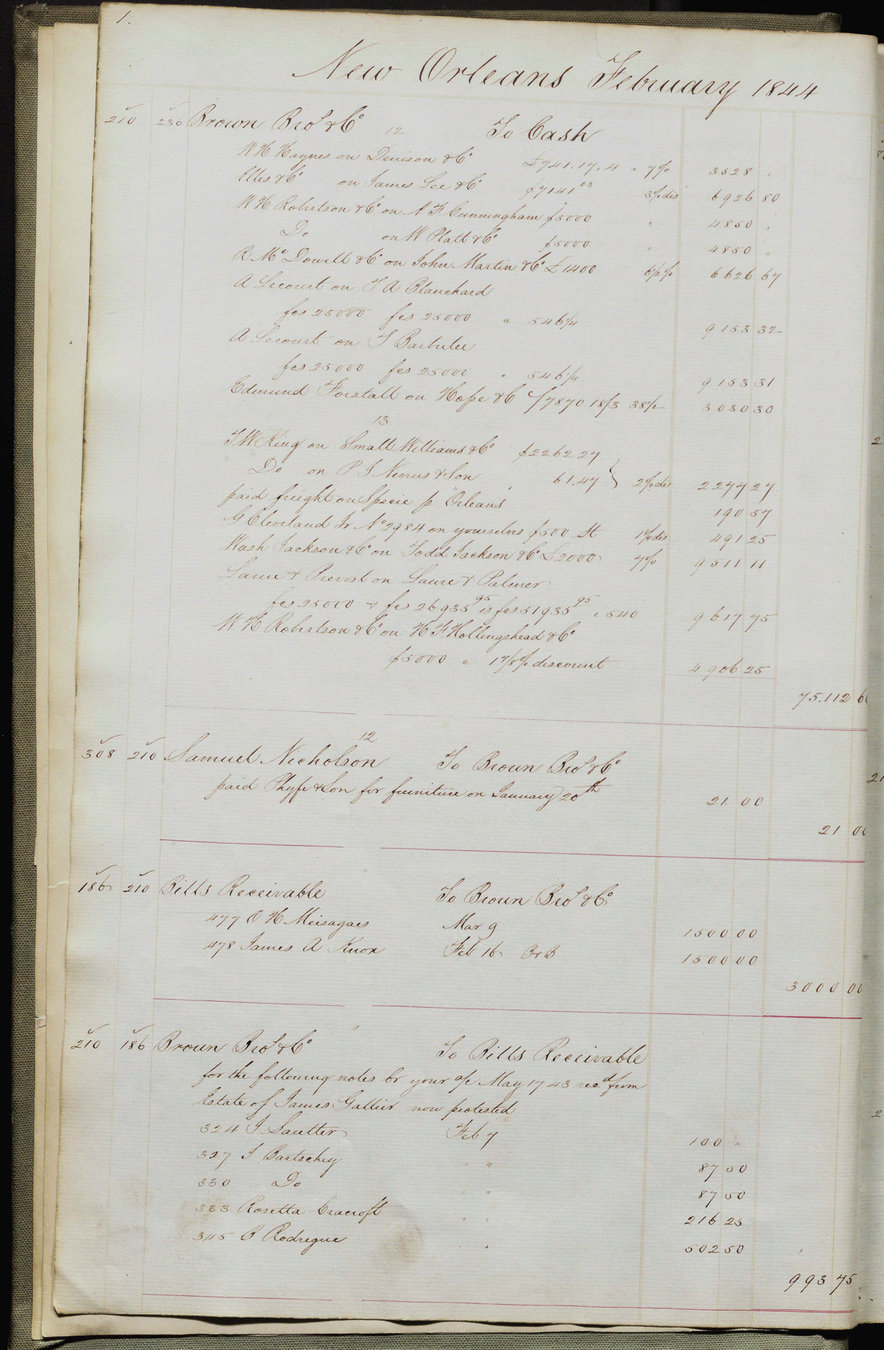 1.
New Orleans February 1844
210 236 Brown Bro.s & Co 12 To Cash
W H Haynes on Denison & Co £741.17.4 " 7 p% 3528 "
Ellis & Co on James Lee & Co $7141 03 3 p% dis 6926 80
W H Robertson & Co on A F Cunningham $5000 " 4850 "
Do on W Platt & Co $5000 " 4850 "
R McDowell & Co on John Martin & Co £1400 6½ p% 6626 67
A Lecourt on F A Blanchard
fcs 25000 fcs 25000 " 546¼ 9153 32
A Lecourt on F Barbulee
fcs 25000 fcs 25000 " 546¼ 9153 31
Edmund Forstall on Hope & Co 7870 18/3 38½ 3030 30
13
T W King on Small Williams & Co $2262 27
Do on P I Nevius & Son 61.47 } 2 p% dis 2277 27
paid freight on Specie p "Orleans" 190 57
G Cleveland Jr No 2984 on yourselves $500 St 1 p% dis 491 25
Wash Jackson & Co on Todd Jackson & Co £2000 7 p% 9511 11
Larue & Prevost on Larue & Palmer
fcs 25000 & fcs 26935 95 is fcs 51935 95 " 540 9617 75
W H Robertson & Co on H F Hollingshead & Co
$5000 " 1⅞ p% discount 4906 25
75.112 6
12
308 210 Samuel Nicholson To Brown Bro.s & Co
paid Phyfe & Son for furniture on January 20th 21 00
21 00
186 210 Bills Receivable To Brown Bro.s & Co
477 O H Meisagaes Mar 9 1500 00
478 James A Knox Feb 16 B&B 1500 00
3000 00
"
210 186 Brown Bro.s & Co To Bills Receivable
for the following notes cr your a/c May 17 43 recd from
Estate of James Gallier now protested
324 J Sautter Feb 7 100 "
327 J Bartschey " " 87 50
330 Do " " 87 50
333 Rosetta Cracroft " " 216 25
345 B Rodrigue " 502 50
993 75